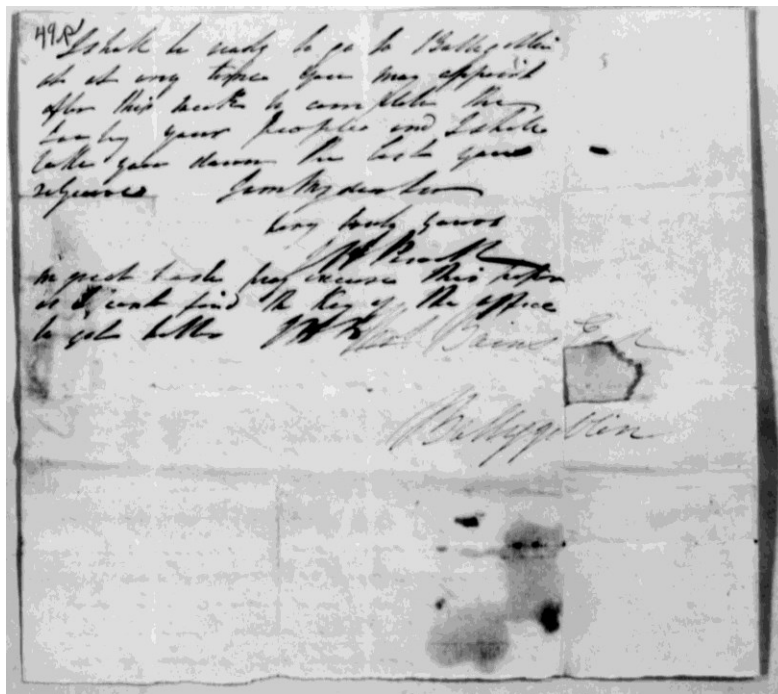 49.R
I shall be ready to go to Ballygiblin
at at any time you may appoint
after this week to complete the
your peoples and I shall
take you down the last you
require I am My dear
very truly yours
in great haste pray excuse this paper
as I cant find the key of the office
to get better
Bains Esqr
Ballygiblin